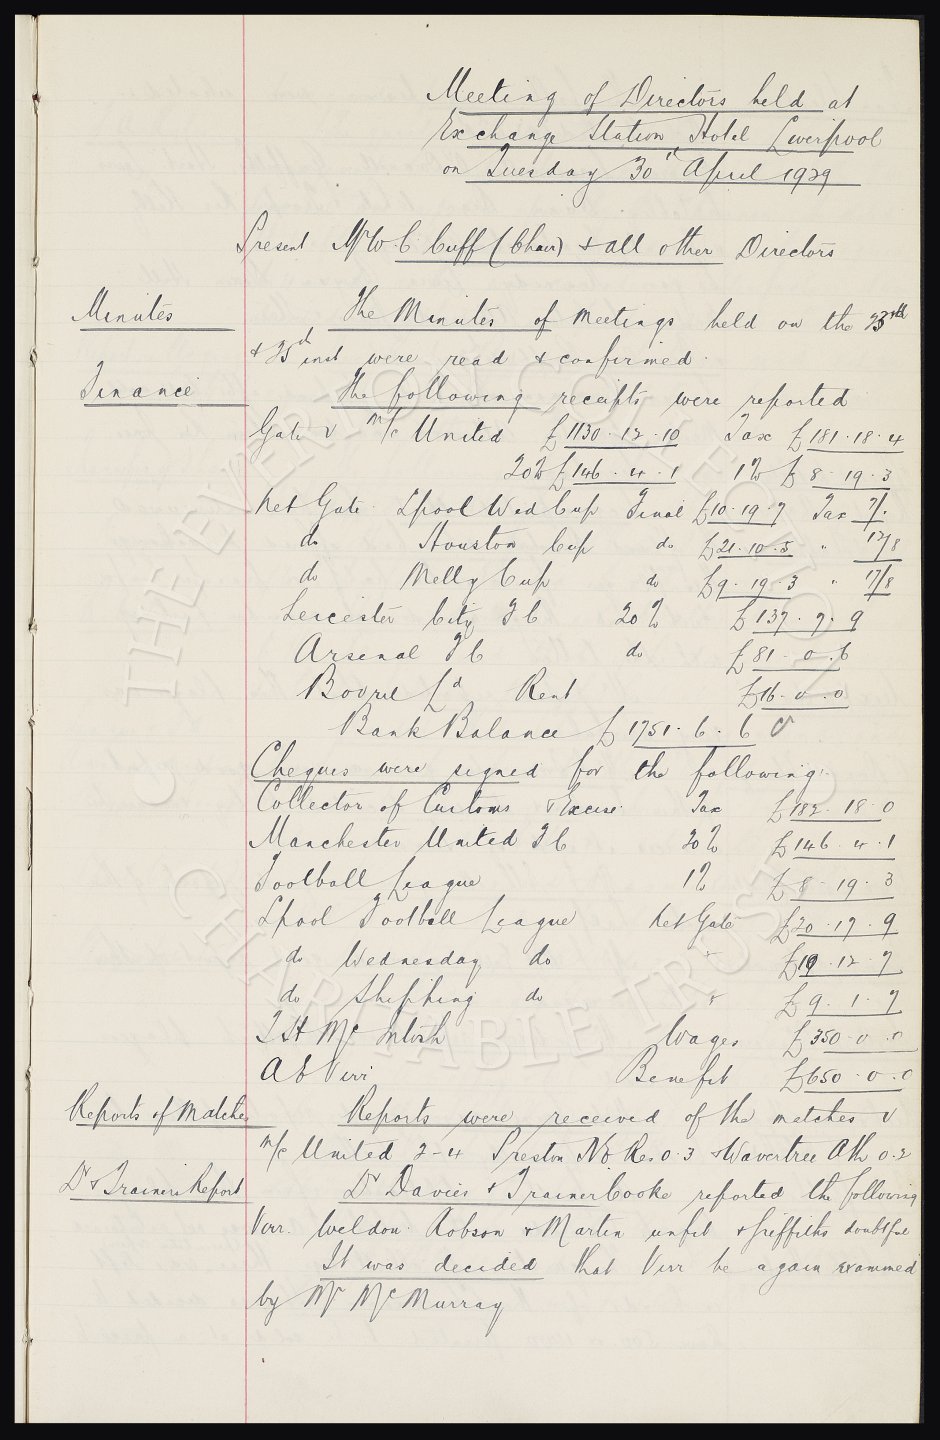 Meeting of Directors held at
Exchange Station Hotel Liverpool
on Tuesday 30th April 1929
Present Mr W.C. Cuff (Chair) & all other Directors
Minutes The Minutes of Meetings held on the 23rd
& 25th inst were read & confirmed.
Finance The following receipts were reported
Gate v M/c United £1130.12.10 Tax £181.18.4
20% £146.4.1 1% £8.19.3
Net Gate Lpool Wed Cup Final £10.19.7 Tax 7/.
do Houston Cup do £21.10.5 " 17/8
do Melly Cup do £9.19.3 " 17/8
Leicester City F C 20% £137.7.9
Arsenal F C do £81.0.6
Bovril Ld Rent £16.0.0
Bank Balance £1751.6.6
Cheques were signed for the following:
Collector of Customs & Excise Tax £182.18.0
Manchester United F C 20% £146.4.1
Football League 1% £8.19.3
Lpool Football League Net Gate £20.17.9
do Wednesday do " £10.12.7
do Shipping do " £9.1.7
T H McIntosh Wages £350.0.0
A C Virr Benefit £650.0.0
Reports of Matches Reports were received of the matches v
M/c United 2-4 Preston N E Res 0.3 & Wavertree Ath 0.2
Dr & Trainers Report Dr Davies & Trainer Cooke reported the following
Virr. Weldon. Robson & Martin unfit & Griffiths doubtful
It was decided that Virr be again examined
by Mr McMurray
© THE EVERTON COLLECTION
CHARITABLE TRUST